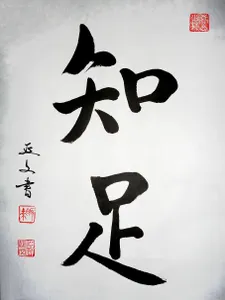 知足
亚文書